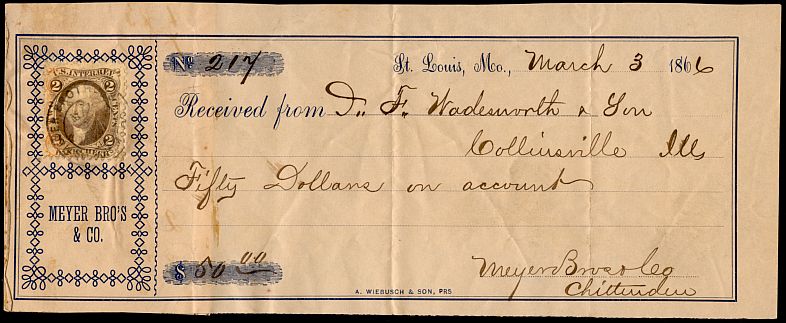 U.S. INTER. REV.
2 2
No 217 St. Louis, Mo., March 3 1866
Received from D. F. Wadesworth & Son
Collinsville Ills
Fifty Dollars on account
MEYER BRO'S
& CO.
$ 50 00
Meyer Bros & Co
Chittenden
A. WIEBUSCH & SON, PRS